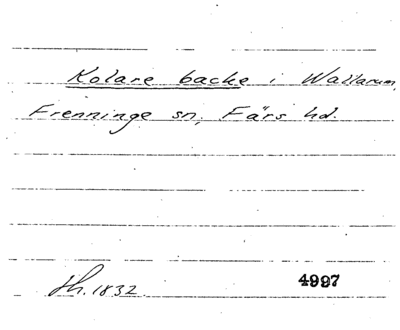 Kolare backe i Wallarum,
Frenninge sn, Färs hd.
th. 1832
4997